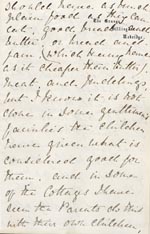 should have as much
plain food as they can
eat, good bread and
butter, or bread and
jam (which I know
as it cheaper than butter,)
meat, and puddings,
but I know it is not
done in some gentlemen's
families the children
have given what is
considered good for
them, and in some
of the Cottages I have
seen the Parents do this
with their own children,